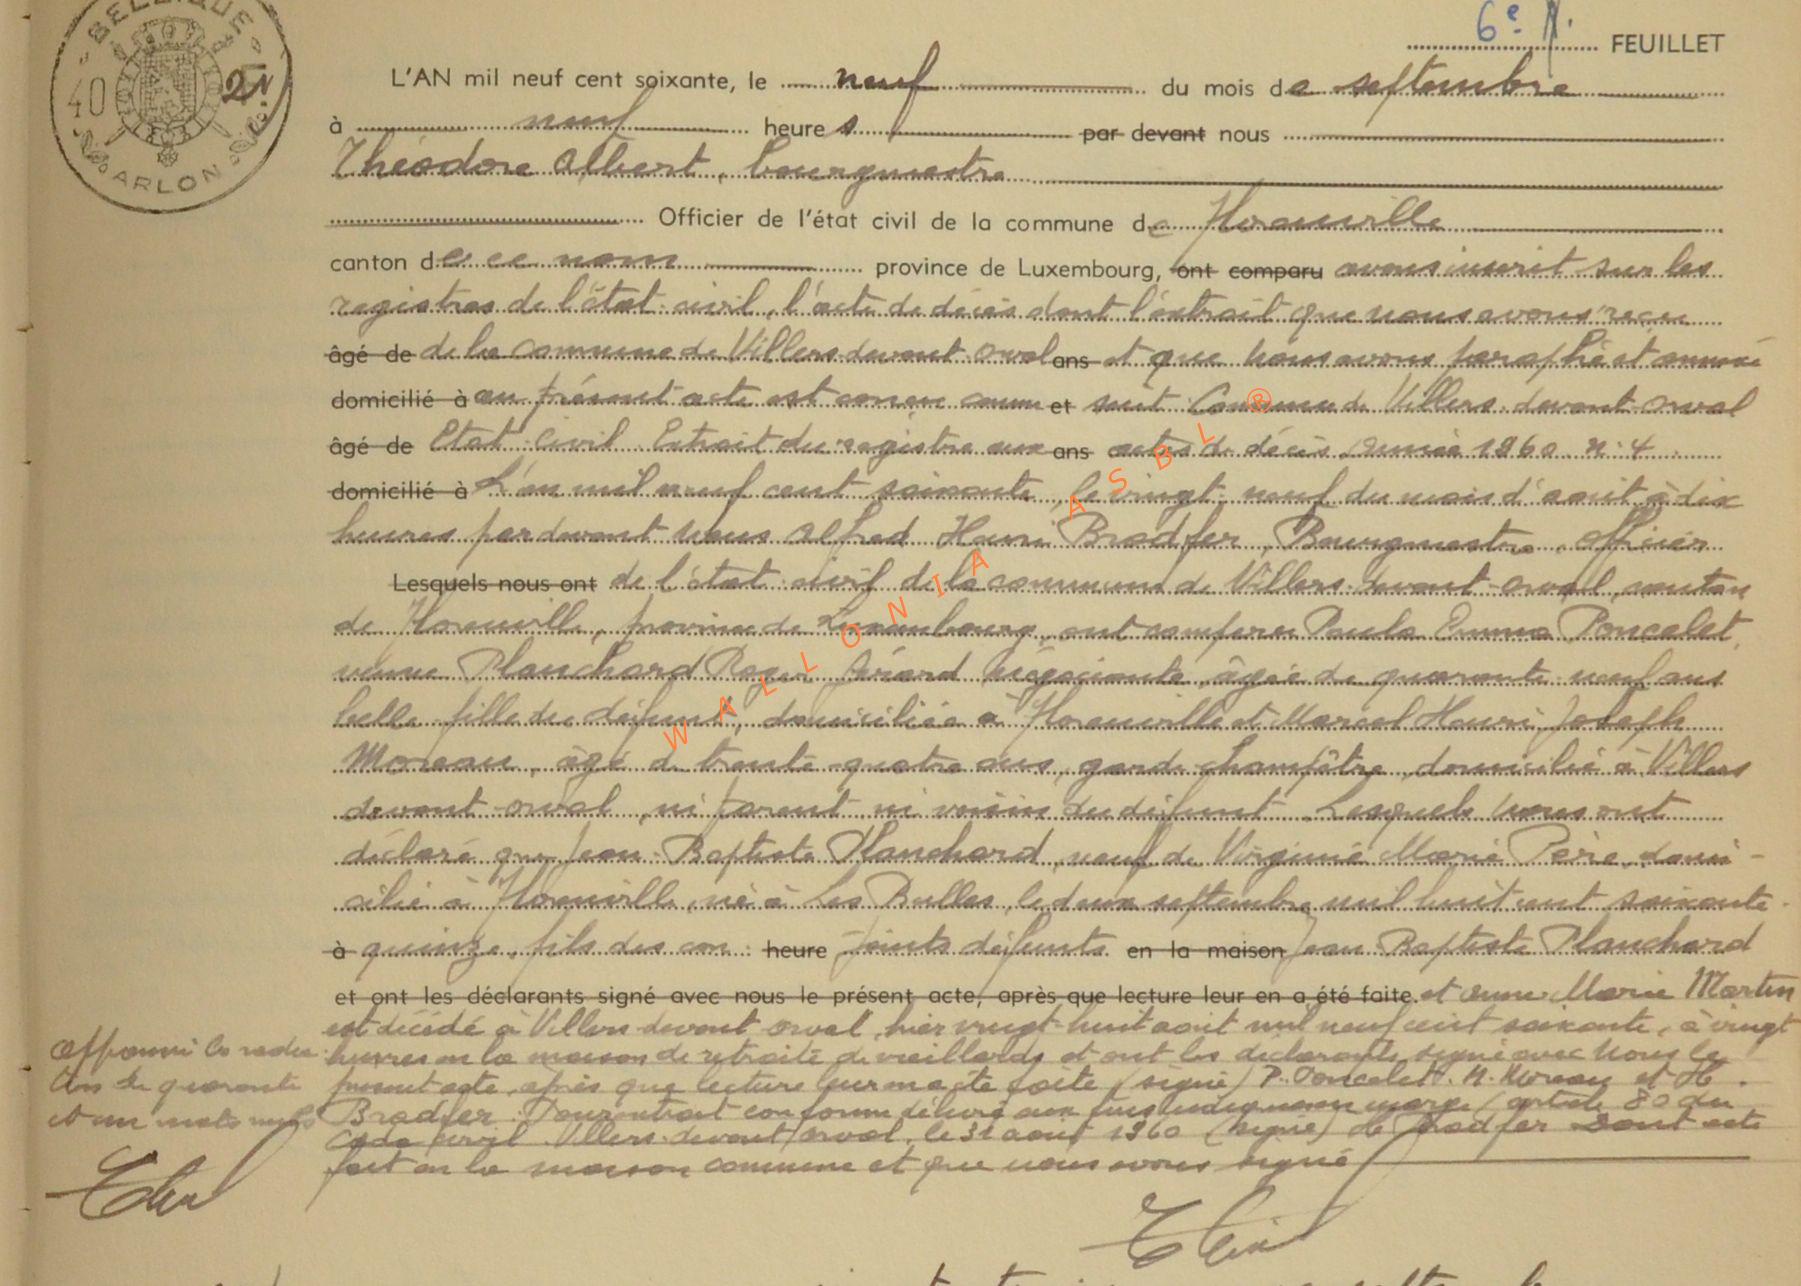 BELGIQUE
40 2N
ARLON
6e FEUILLET
L'AN mil neuf cent soixante, le neuf du mois de septembre
à neuf heures par devant nous
Théodore Albert, bourgmestre
Officier de l'état civil de la commune de Florenville
canton de ce nom province de Luxembourg, ont comparu avons inscrit sur les
registres de l'état civil, l'acte de décès dont l'extrait que nous avons reçu
âgé de de la commune de Villers devant Orval ans et que nous avons paraphé et annexé
domicilié à au présent acte est conçu comme et suit Commune de Villers devant Orval
âgé de Etat Civil Extrait du registre aux ans actes de décès, année 1960 n: 4
domicilié à L'an mil neuf cent soixante, le vingt neuf du mois d'août à dix
heures par devant nous Alfred Henri Bradfer, Bourgmestre, officier
Lesquels nous ont de l'état civil de la commune de Villers devant Orval, canton
de Florenville, province de Luxembourg, ont comparu Paula Emma Poncelet,
veuve Planchard Roger Gérard négociante, âgée de quarante neuf ans
belle fille du défunt, domiciliée à Florenville et Marcel Henri Joseph
Moreau, âgé de trente quatre ans, garde champêtre, domicilié à Villers
devant Orval, ni parent ni voisin du défunt. Lesquels nous ont
déclaré que Jean-Baptiste Planchard, veuf de Virginie Marie Père, domi-
cilié à Florenville, né à Les Bulles, le deux septembre mil huit cent soixante-
à quinze, fils des con- heure joints défunts en la maison Jean-Baptiste Planchard
et ont les déclarants signé avec nous le présent acte, après que lecture leur en a été faite. et Anne Marie Martin
est décédé à Villers devant Orval, hier vingt-huit août mil neuf cent soixante, à vingt
heures en la maison de retraite de vieillards et ont les déclarants signé avec nous le
présent acte, après que lecture leur en a été faite (signé) P. Poncelet. M. Moreau et H.
Bradfer. Pour extrait conforme délivré aux fins en marge (article 80 du
Code civil. Villers devant Orval, le 31 août 1960 (signé) H. Bradfer Dont acte
fait en la maison commune et que nous avons signé
Approuvé la radia
tion de quarante
et un mots nuls
WALLONIA ASBL ®